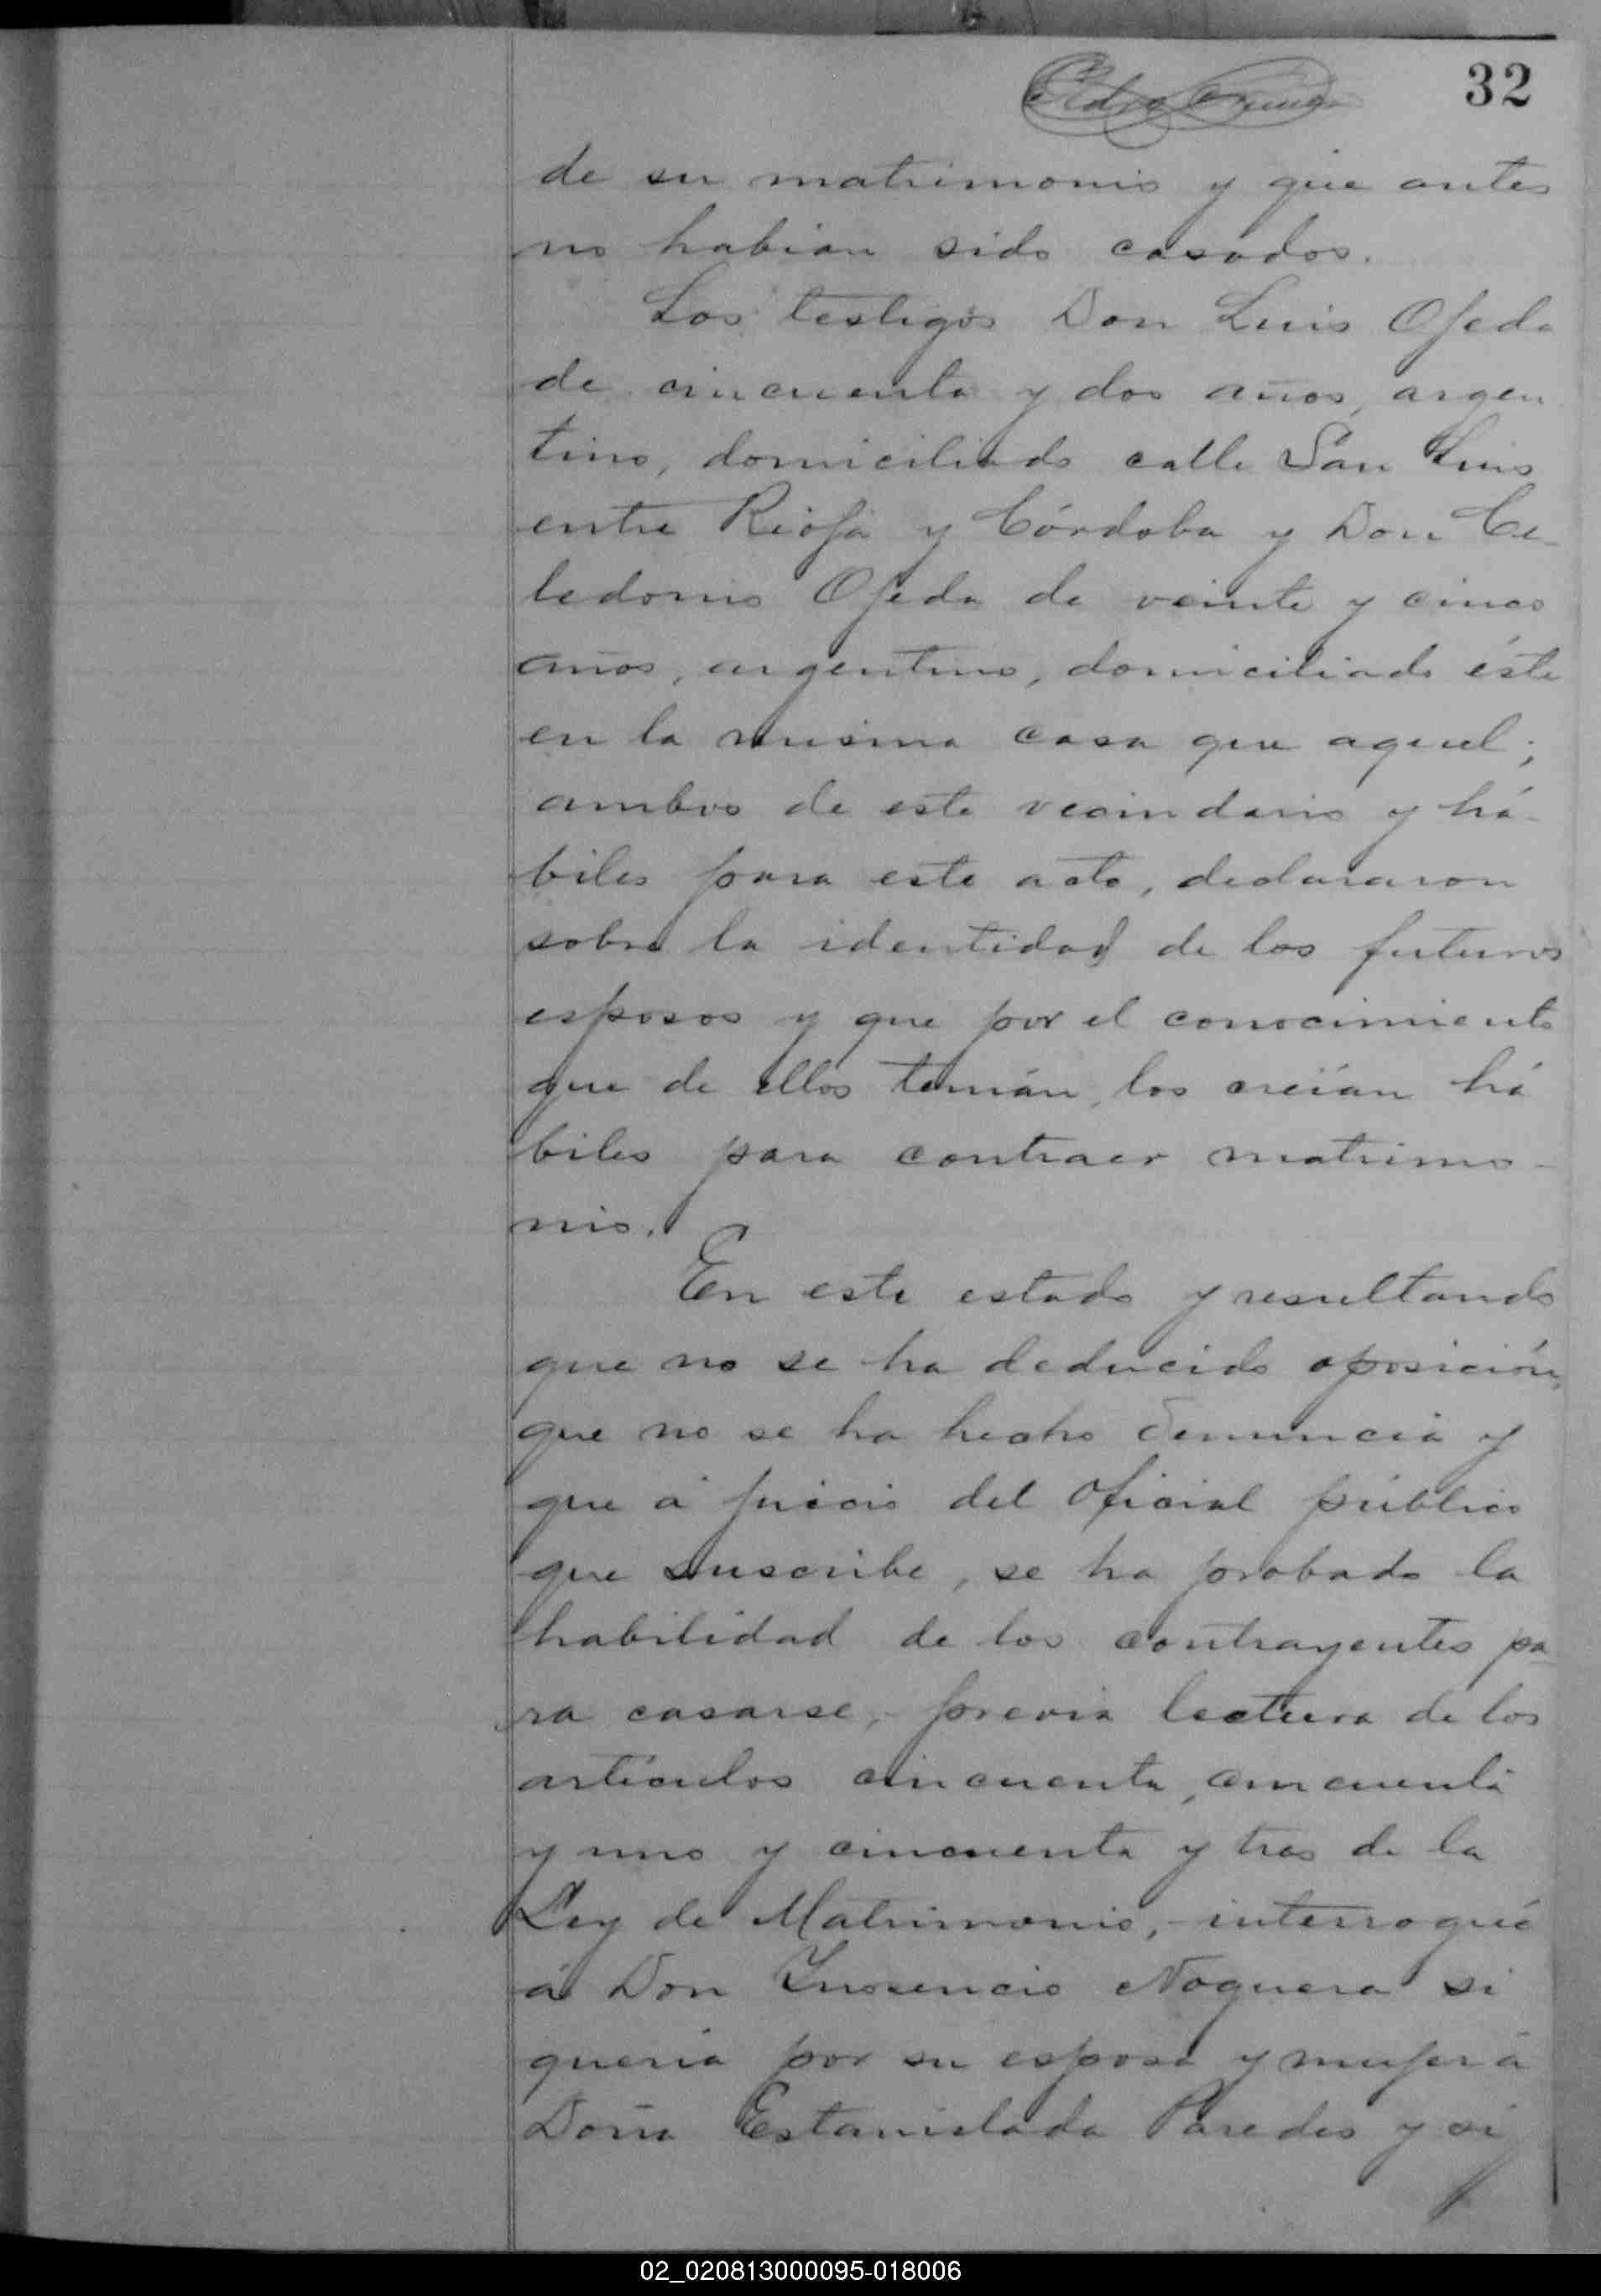 32
de su matrimonio y que antes
no habian sido casados.
Los testigos Don Luis Ojeda
de cincuenta y dos años, argen
tino, domiciliado calle San Luis
entre Rioja y Córdoba y Don Ce-
ledonio Ojeda de veinte y cinco
años, argentino, domiciliado éste
en la misma casa que aquel;
ambos de este vecindario y há-
biles para este acto, declararon
sobre la identidad de los futuros
esposos y que por el conocimiento
que de ellos tenían, los creían há
biles para contraer matrimo-
nio.
En este estado y resultando
que no se ha deducido oposición,
que no se ha hecho denuncia y
que á juicio del Oficial público
que suscribe, se ha probado la
habilidad de los contrayentes pa
ra casarse, previa lectura de los
artículos cincuenta, cincuenta
y uno y cincuenta y tres de la
Ley de Matrimonio, - interrogué
á Don Inosencio Noguera si
quería por su esposa y mujer á
Doña Estanislada Paredes y si
02_020813000095-018006